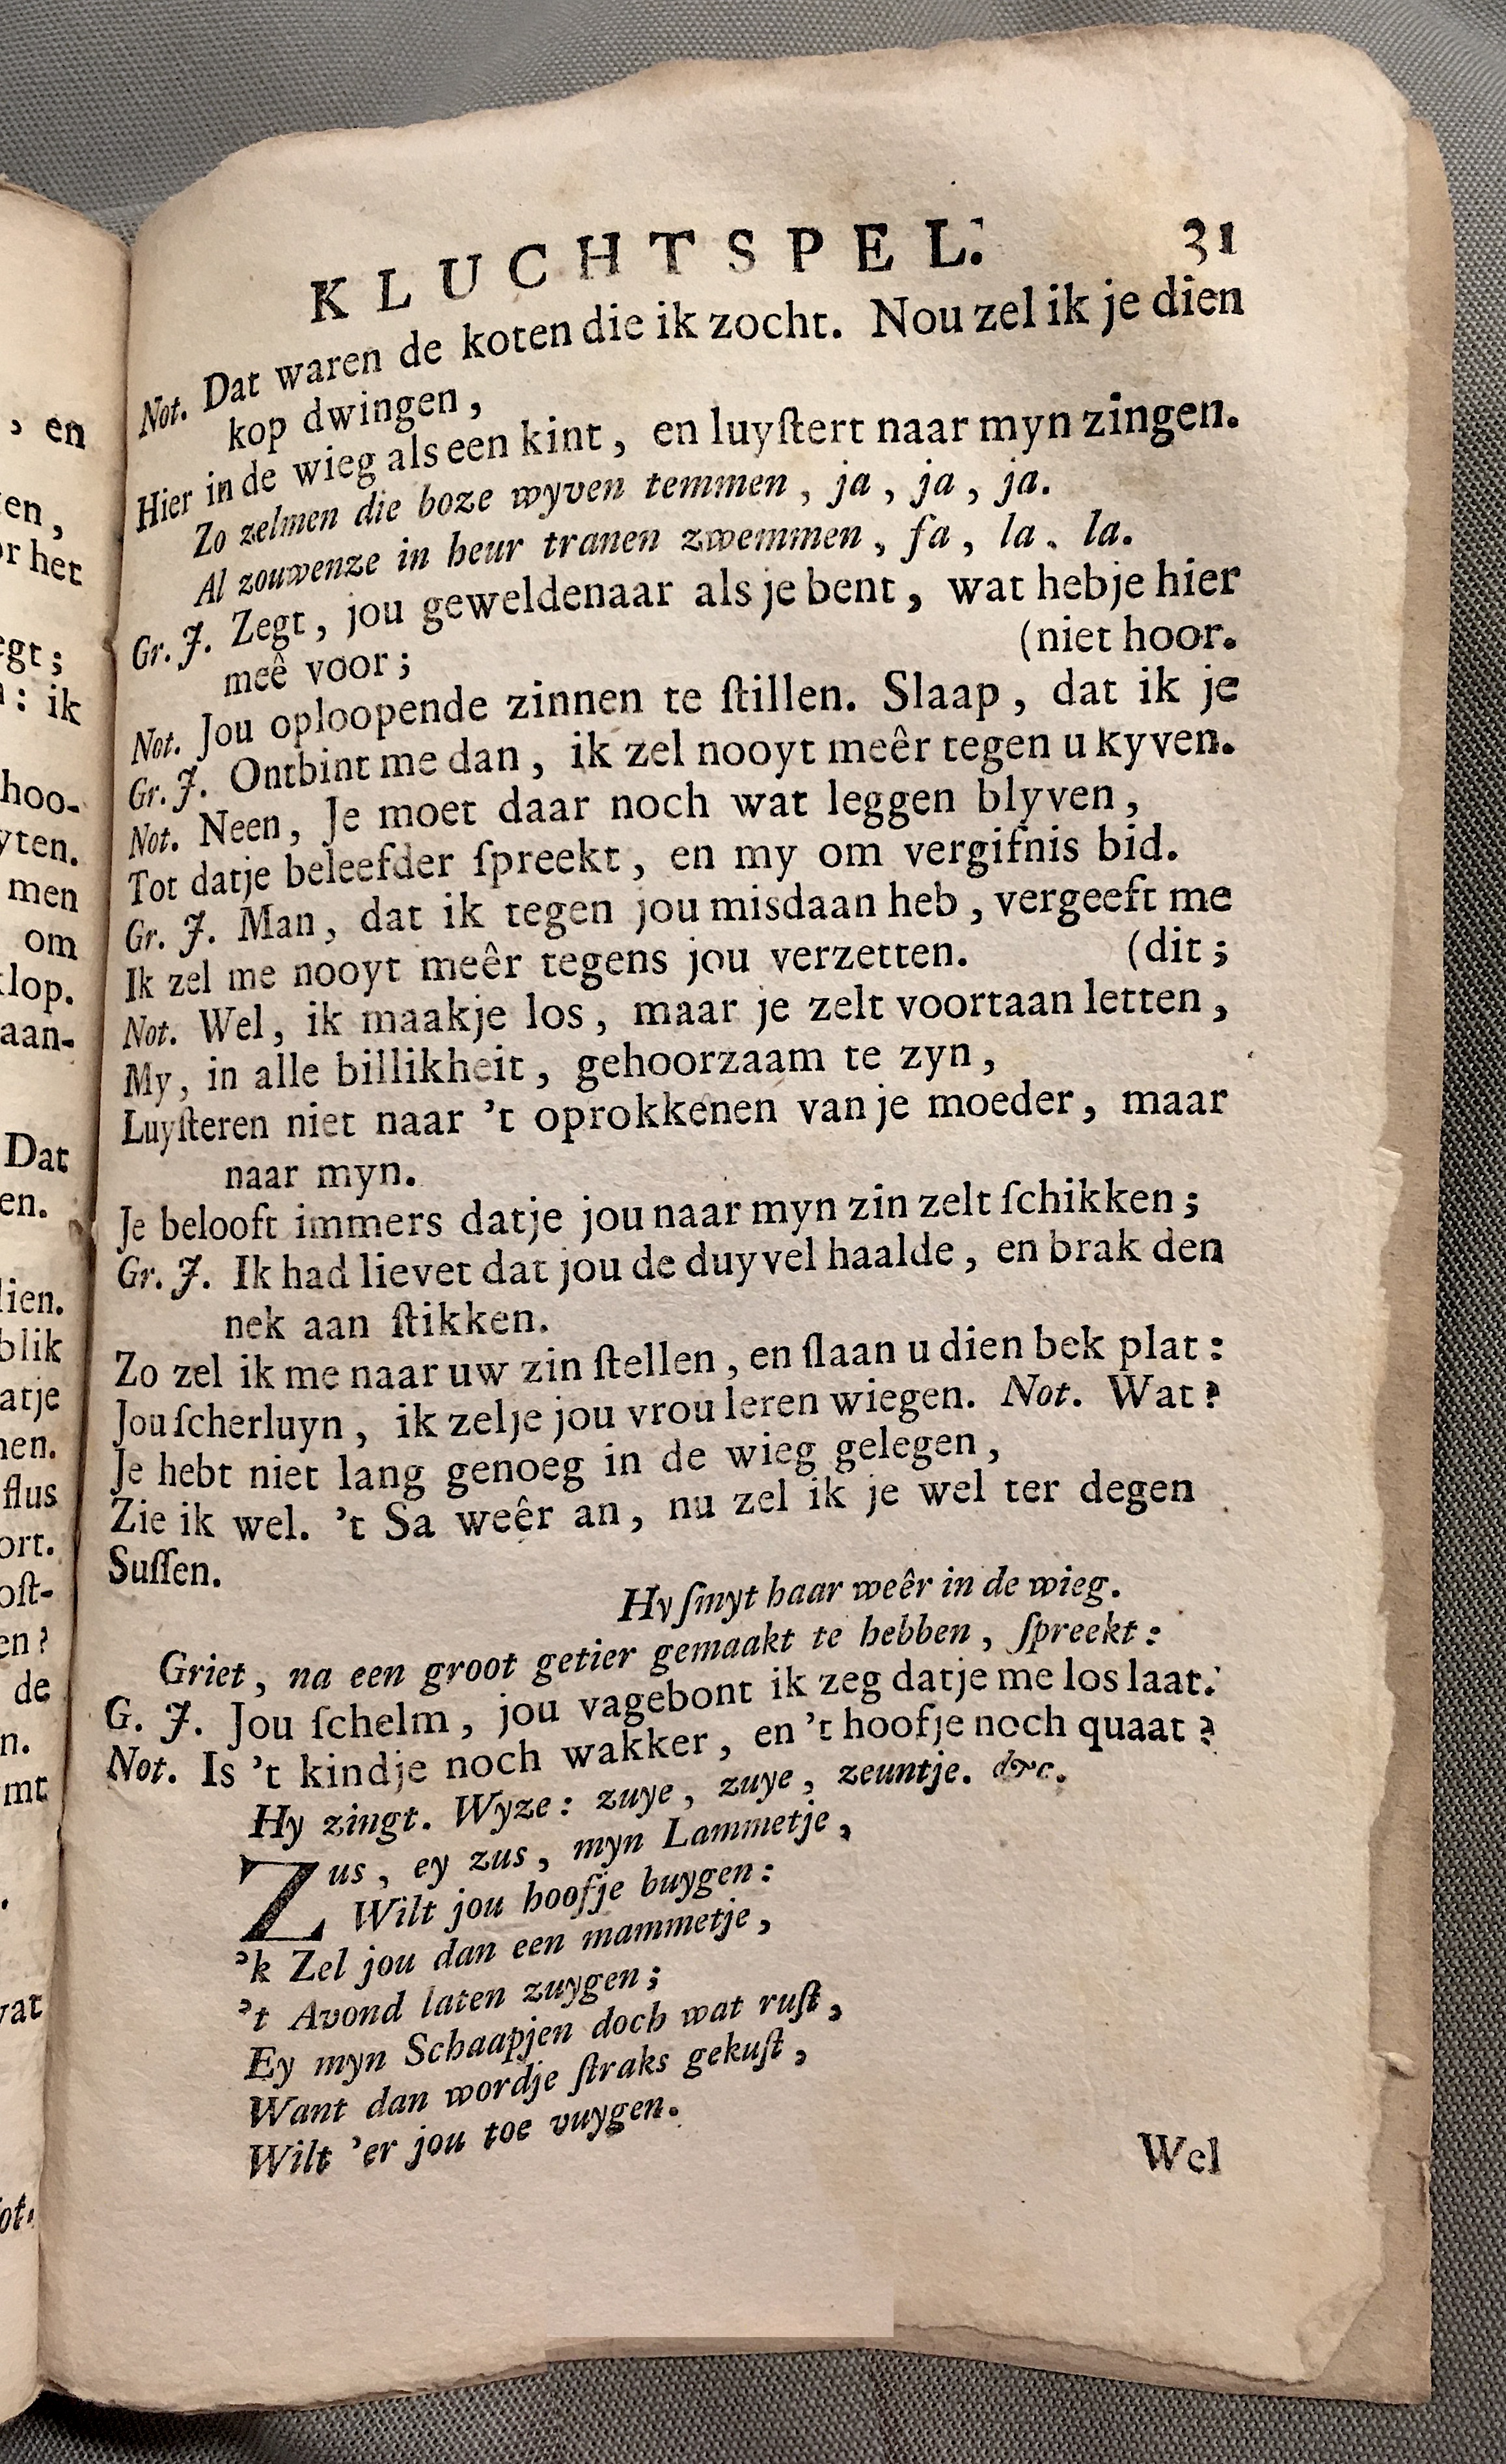 KLUCHTSPEL. 31
Not. Dat waren de koten die ik zocht. Nou zel ik je dien
kop dwingen,
Hier in de wieg als een kint, en luyſtert naar myn zingen.
Zo zelmen die boze wyven temmen, ja, ja, ja.
Al zouwenze in heur tranen zwemmen, fa, la, la.
Gr. J. Zegt, jou geweldenaar als je bent, wat hebje hier
meê voor; (niet hoor.
Not. Jou oploopende zinnen te ſtillen. Slaap, dat ik je
Gr. J. Ontbint me dan, ik zel nooyt meêr tegen u kyven.
Not. Neen, Je moet daar noch wat leggen blyven,
Tot datje beleefder ſpreekt, en my om vergifnis bid.
Gr. J. Man, dat ik tegen jou misdaan heb, vergeeft me
Ik zel me nooyt meêr tegens jou verzetten. (dit;
Not. Wel, ik maakje los, maar je zelt voortaan letten,
My, in alle billikheit, gehoorzaam te zyn,
Luyſteren niet naar 't oprokkenen van je moeder, maar
naar myn.
Je belooft immers datje jou naar myn zin zelt ſchikken;
Gr. J. Ik had liever dat jou de duyvel haalde, en brak den
nek aan ſtikken.
Zo zel ik me naar uw zin ſtellen, en ſlaan u dien bek plat:
Jou ſcherluyn, ik zelje jou vrou leren wiegen. Not. Wat?
Je hebt niet lang genoeg in de wieg gelegen,
Zie ik wel. 't Sa weêr an, nu zel ik je wel ter degen
Suſſen.
Hy ſmyt haar weêr in de wieg.
Griet, na een groot getier gemaakt te hebben, ſpreekt:
G. J. Jou ſchelm, jou vagebont ik zeg datje me los laat.
Not. Is 't kindje noch wakker, en 't hoofje noch quaat?
Hy zingt. Wyze: zuye, zuye, zeuntje. &c.
Zus, ey zus, myn Lammetje,
Wilt jou hoofje buygen:
'k Zel jou dan een mammetje,
't Avond laten zuygen;
Ey myn Schaapjen doch wat ruſt,
Want dan wordje ſtraks gekuſt,
Wilt 'er jou toe vuygen.
Wel
, en
en,
or het
egt;
: ik
hoo-
yten.
men
om
klop.
aan-
Dat
en.
lien.
blik
atje
nen.
flus
ort.
oſt-
en?
de
n.
mt
vat
ot.